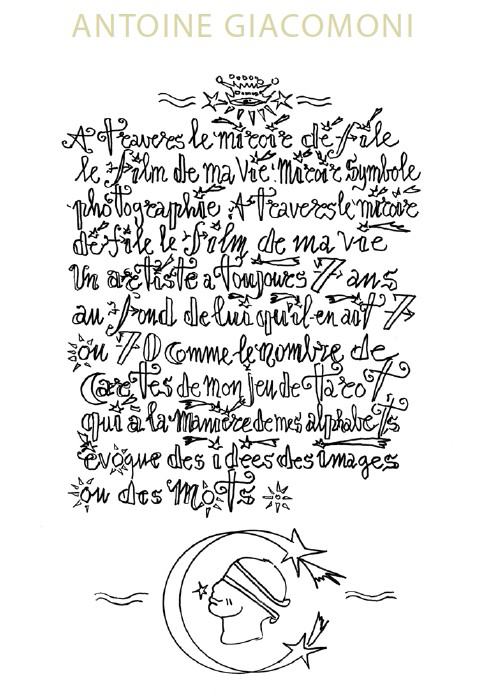 ANTOINE GIACOMONI
A travers le miroir défile
le film de ma vie. Miroir Symbole
photographie. A travers le miroir
défile le film de ma vie
Un artiste a toujours 7 ans
au fond de lui qu'il en ait 7
ou 70 comme le nombre de
Cartes de mon jeu de Tarot
qui a la Manière de mes alphabets
évoque des idées des images
ou des Mots